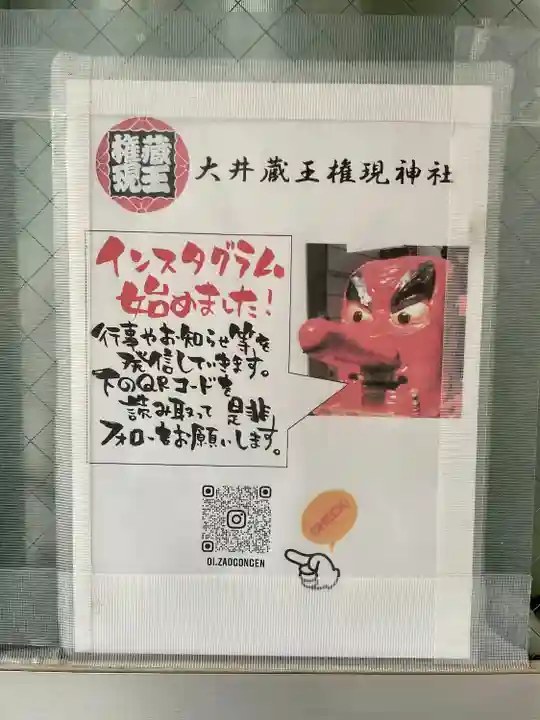 蔵王
権現
大井蔵王権現神社
インスタグラム
始めました!
行事やお知らせ等を
発信していきます。
下のQRコードを
読み取って 是非
フォローをお願いします。
CHECK!
OI.ZAOGONGEN